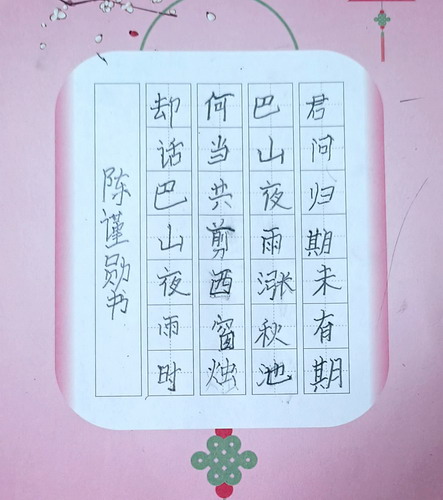 君问归期未有期
巴山夜雨涨秋池
何当共剪西窗烛
却话巴山夜雨时
陈谨勋书